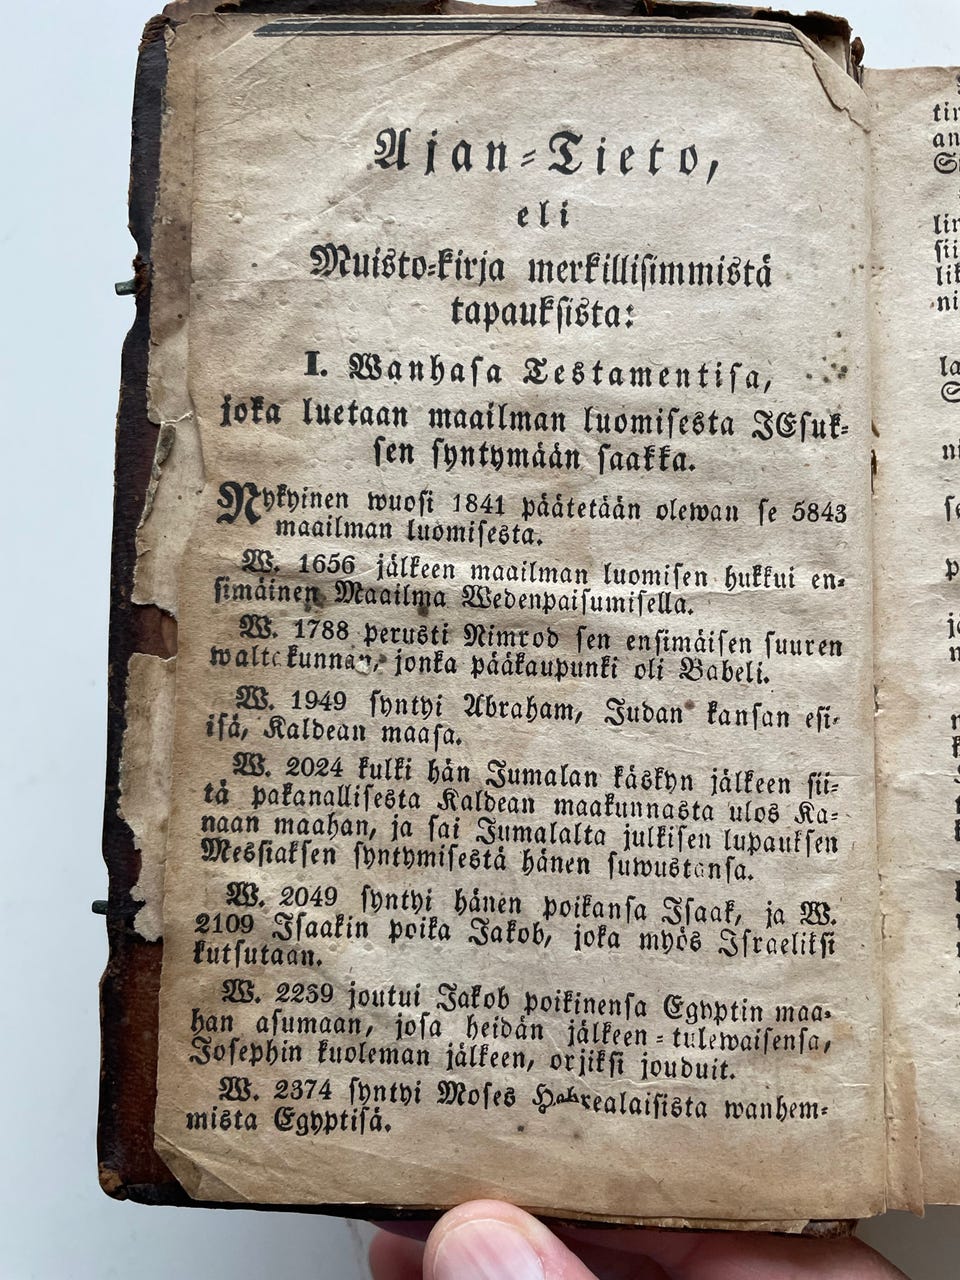 Ajan-Tieto,
eli
Muisto-kirja merkillisimmistä
tapauksista:
I. Wanhasa Testamentisa,
joka luetaan maailman luomisesta JEsuk-
sen syntymään saakka.
Nykyinen wuosi 1841 päätetään olewan se 5843
maailman luomisesta.
W. 1656 jälkeen maailman luomisen hukkui en-
simäinen Maailma Wedenpaisumisella.
W. 1788 perusti Nimrod sen ensimäisen suuren
waltakunnan, jonka pääkaupunki oli Babeli.
W. 1949 syntyi Abraham, Judan kansan esi-
isä, Kaldean maasa.
W. 2024 kulki hän Jumalan käskyn jälkeen sii-
tä pakanallisesta Kaldean maakunnasta ulos Ka-
naan maahan, ja sai Jumalalta julkisen lupauksen
Messiaksen syntymisestä hänen suwustansa.
W. 2049 syntyi hänen poikansa Isaak, ja W.
2109 Isaakin poika Jakob, joka myös Israeliksi
kutsutaan.
W. 2239 joutui Jakob poikinensa Egyptin maa-
han asumaan, josa heidän jälkeen-tulewaisensa,
Josephin kuoleman jälkeen, orjiksi jouduit.
W. 2374 syntyi Moses Hebrealaisista wanhem-
mista Egyptisä.